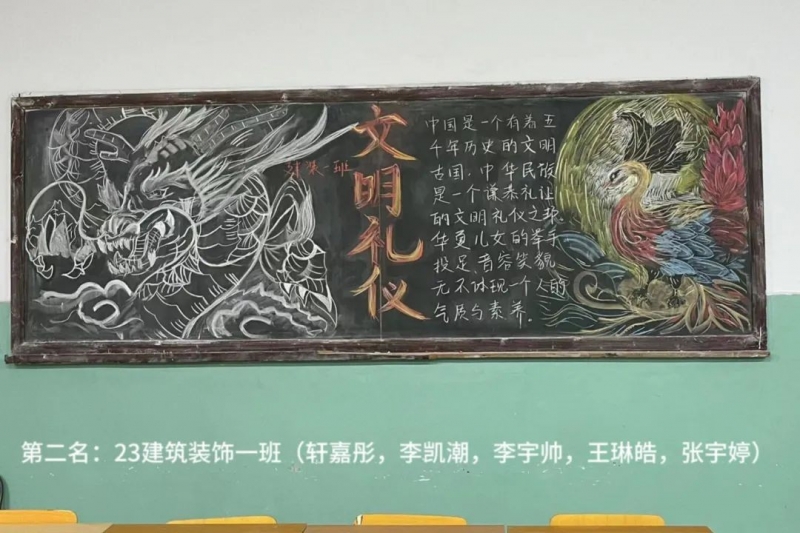 文明礼仪
23装一班
中国是一个有着五
千年历史的文明
古国，中华民族
是一个谦恭礼让
的文明礼仪之邦，
华夏儿女的举手
投足、音容笑貌，
无不体现一个人的
气质与素养。
第二名：23建筑装饰一班（轩嘉彤，李凯潮，李宇帅，王琳皓，张宇婷）